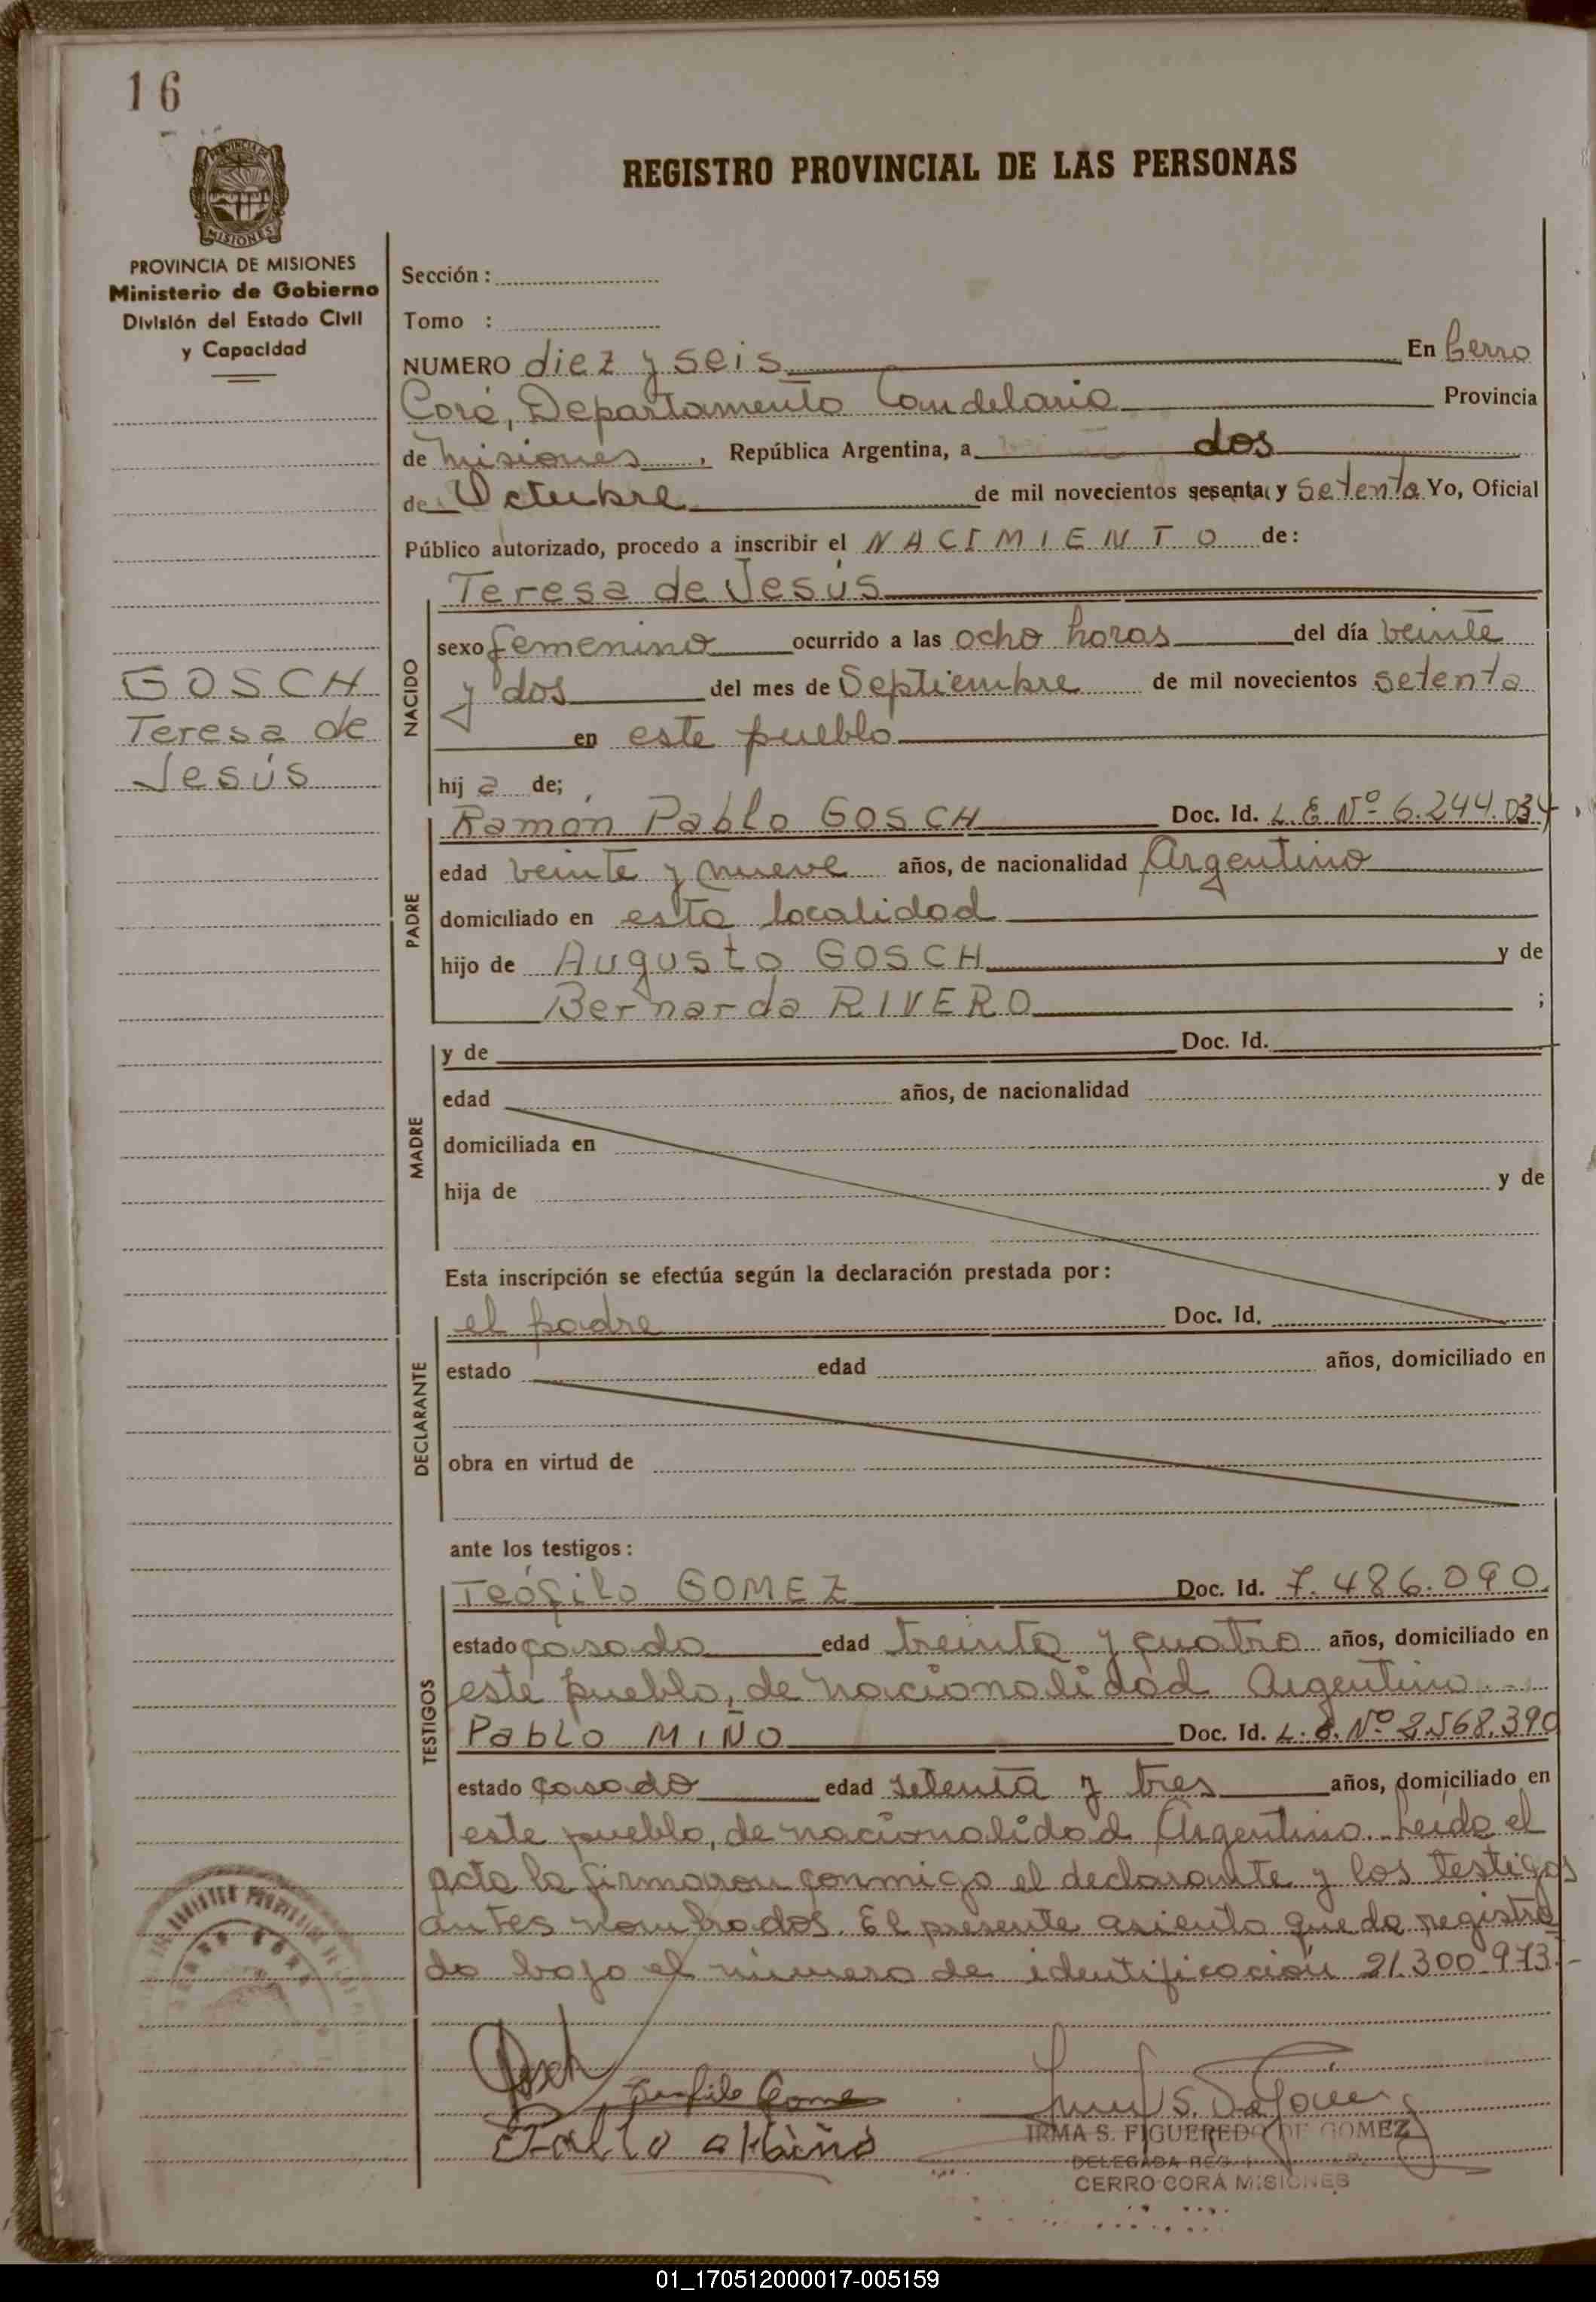 16
PROVINCIA DE
MISIONES
REGISTRO PROVINCIAL DE LAS PERSONAS
PROVINCIA DE MISIONES
Ministerio de Gobierno
División del Estado Civil
y Capacidad
Sección :
Tomo :
NUMERO diez y seis En Cerro
Corá, Departamento Candelaria Provincia
de Misiones, República Argentina, a dos
de Octubre de mil novecientos sesenta y setenta Yo, Oficial
Público autorizado, procedo a inscribir el NACIMIENTO de:
GOSCH
Teresa de
Jesús
NACIDO
Teresa de Jesús
sexo femenino ocurrido a las ocho horas del día veinte
y dos del mes de Septiembre de mil novecientos setenta
en este pueblo
hij a de;
PADRE
Ramón Pablo GOSCH Doc. Id. L.E. Nº 6.244.034
edad veinte y nueve años, de nacionalidad Argentino
domiciliado en esta localidad
hijo de Augusto GOSCH y de
Bernarda RIVERO ;
MADRE
y de Doc. Id.
edad años, de nacionalidad
domiciliada en
hija de y de
Esta inscripción se efectúa según la declaración prestada por:
DECLARANTE
el padre Doc. Id.
estado edad años, domiciliado en
obra en virtud de
ante los testigos:
TESTIGOS
Teófilo GOMEZ Doc. Id. 7.486.090.
estado casado edad treinta y cuatro años, domiciliado en
este pueblo, de nacionalidad Argentino.
Pablo MIÑO Doc. Id. L.E. Nº 2.568.390
estado casado edad setenta y tres años, domiciliado en
este pueblo, de nacionalidad Argentino. Leída el
acta la firmaron conmigo el declarante y los testigos
antes nombrados. El presente asiento queda registra
do bajo el número de identificación 21.300.973.-
Gosch
Teofilo Gome
Pablo Miño
IRMA S. FIGUEREDO DE GOMEZ
DELEGADA REG.
CERRO CORÁ MISIONES
01_170512000017-005159